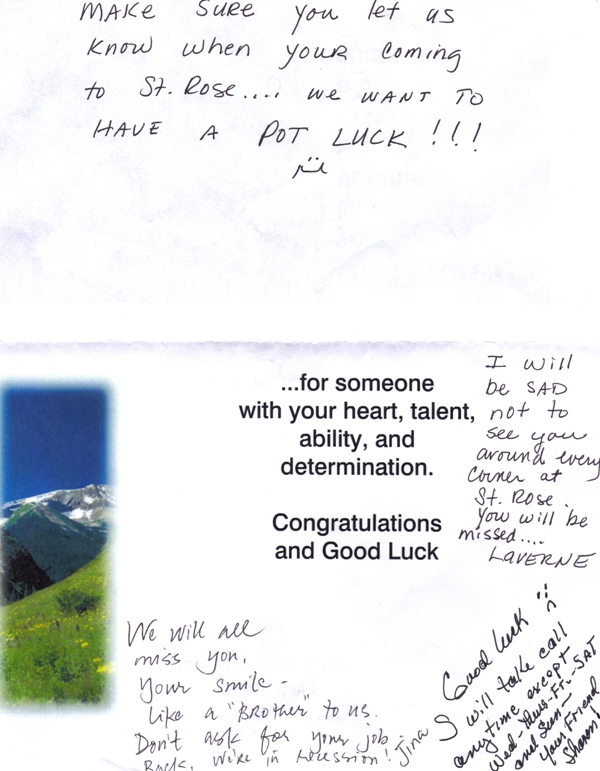 MAKE SURE you let us
know when your coming
to St. Rose.... we WANT TO
HAVE A POT LUCK!!!
...for someone
with your heart, talent,
ability, and
determination.
Congratulations
and Good Luck
I will
be SAD
not to
see you
around every
corner at
St. Rose.
You will be
missed....
LAVERNE
We will all
miss you,
Your smile -
Like a "BROTHER" to us.
Don't ask for your job
Back, We're in recession! Jina
Good luck
I will take call
anytime except
Wed-Thus-Fri-SAT
and Sun-
your Friend